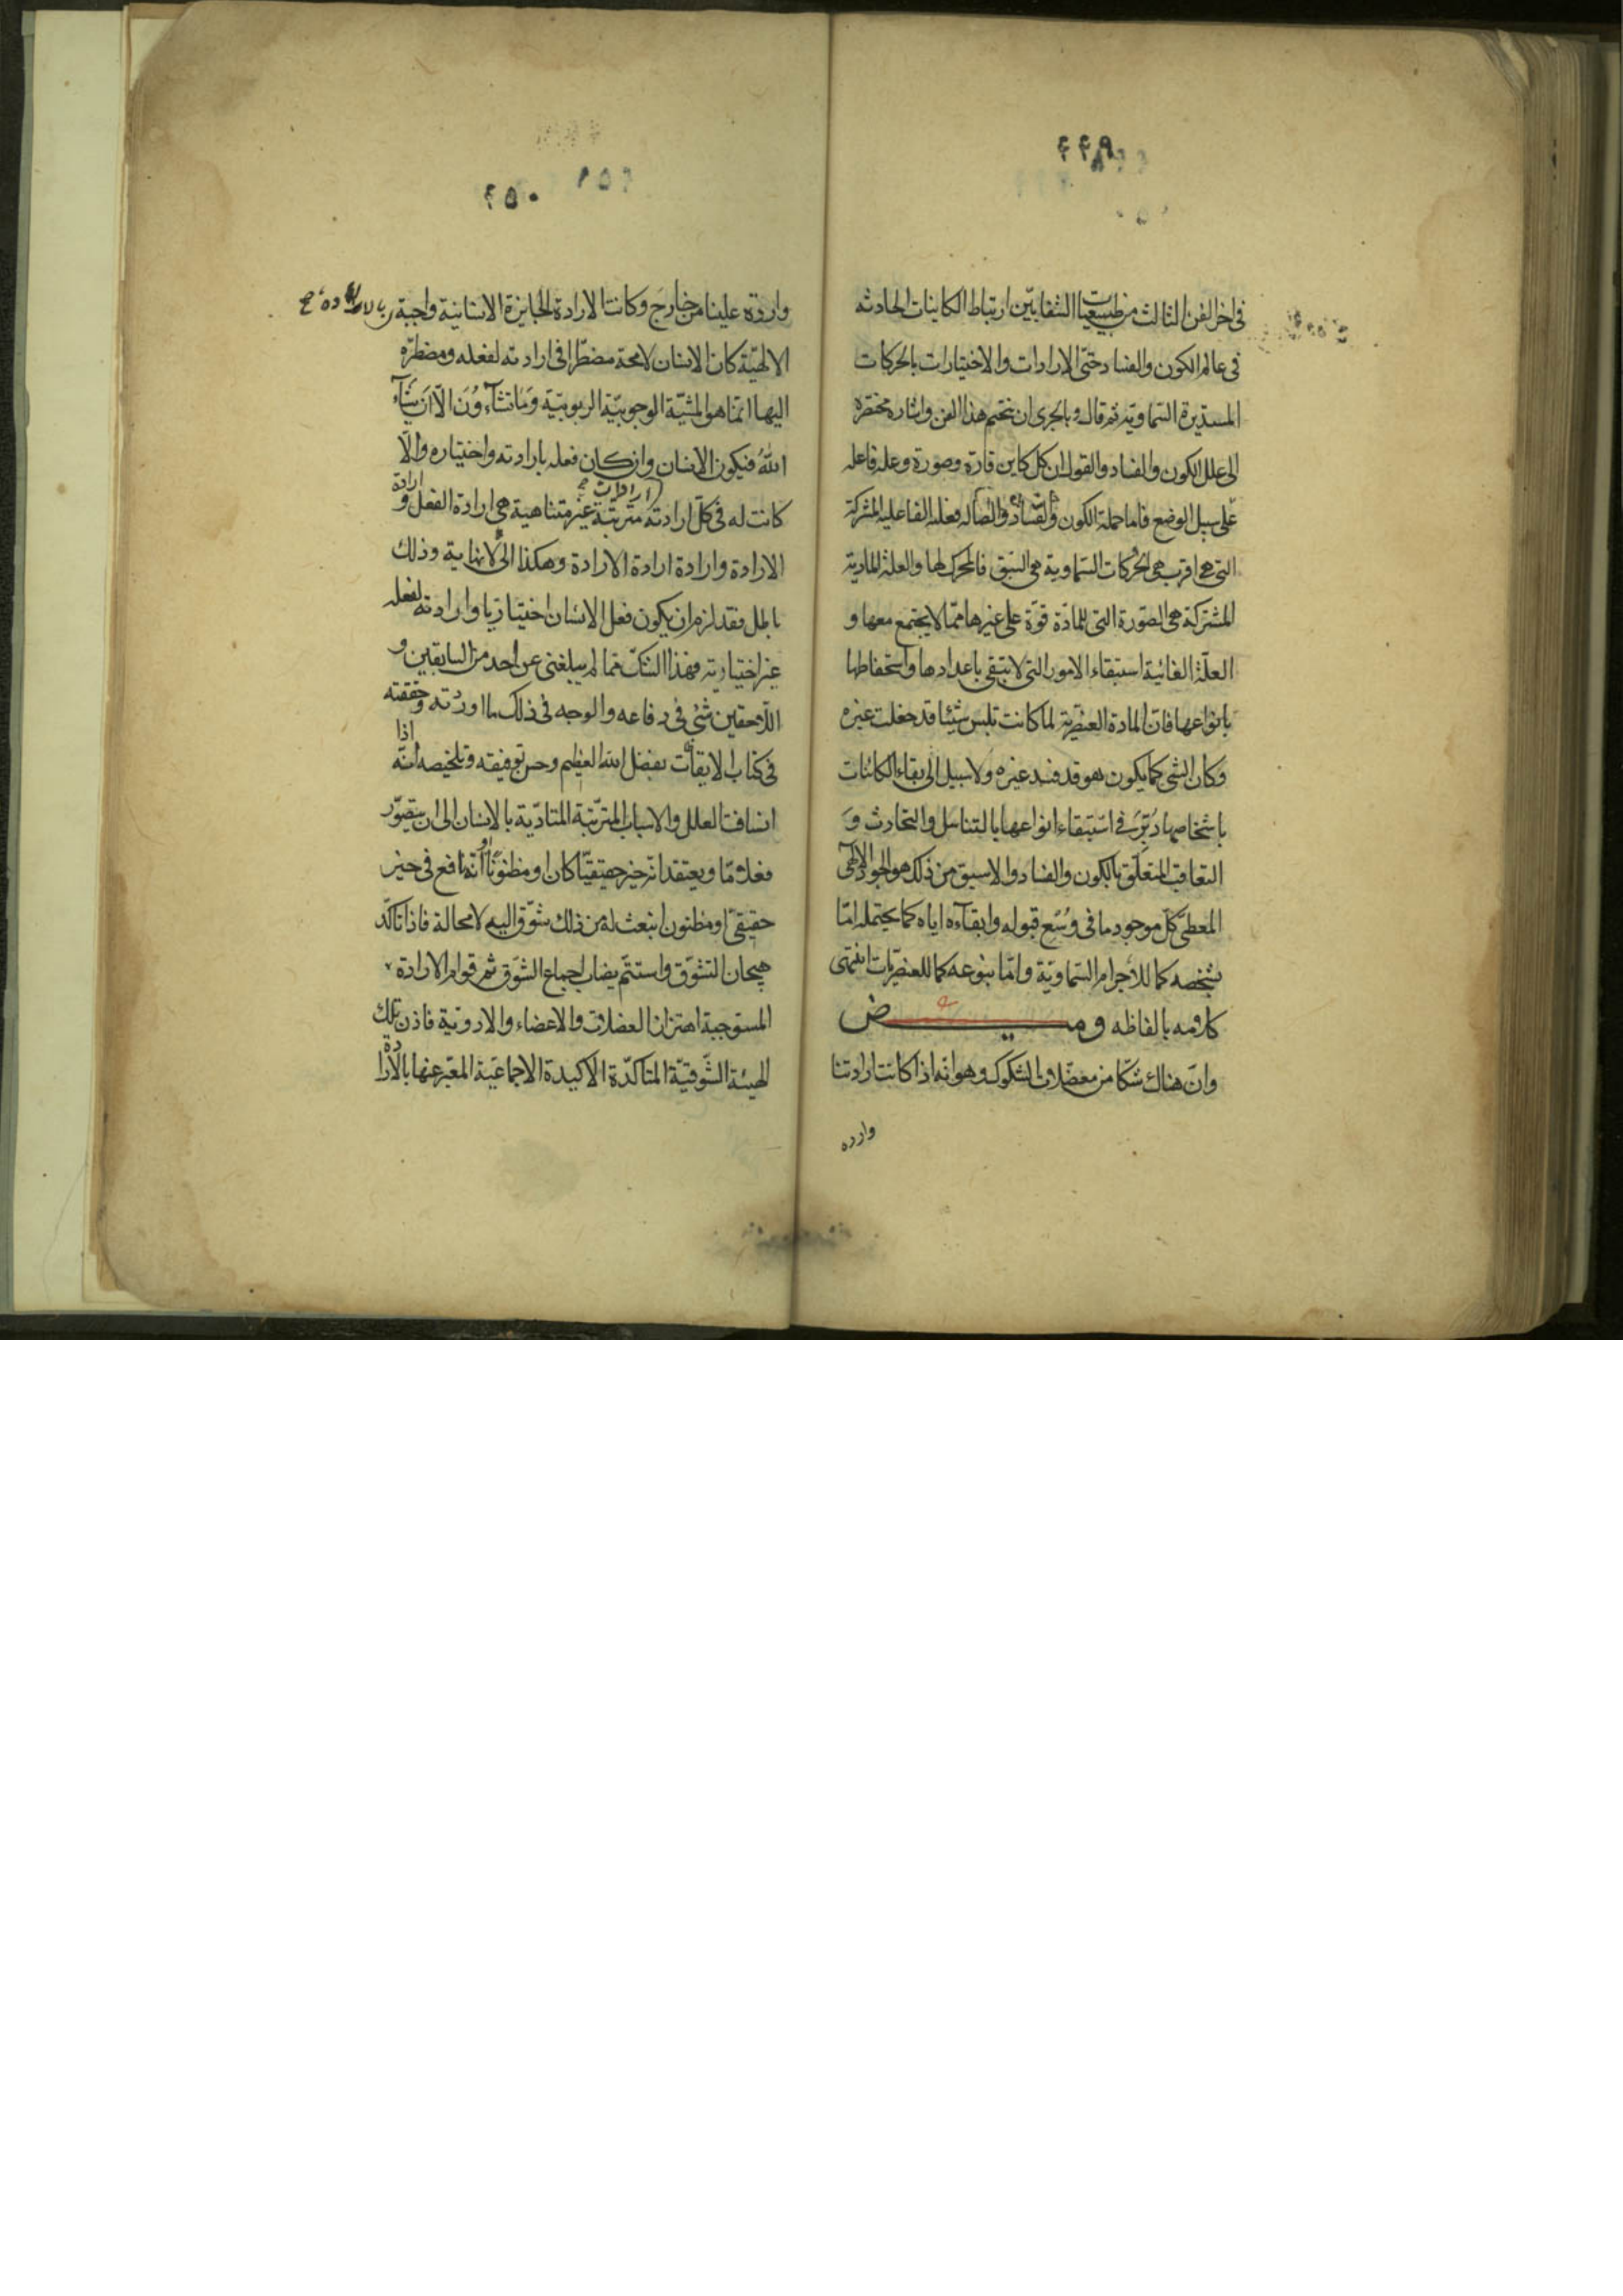 ٤٤٩
فى اخر الفن الثالث من طبيعيات الشفا بيّن ارتباط الكاينات الحادثه
فى عالم الكون والفساد حتّى الارادات والاختيارات بالحركات
المستديرة السّماويّه ثم قال وبالحرى ان نختم هذا الفن واشاره مختصرة
الى علل الكون والفساد والقول ان كل كاين مادّة وصورة وعلة فاعلة
على سبيل الوضع فاما جملة الكون والفساد واتصاله فعلته الفاعليه المشتركة
التى هى اقرب هى الحركات السّماوية هى اسبق فالمحرك لها والعلة المادية
المشتركة هى الصّورة التى للمادّة قوّة على غيرها ممّا لا يجتمع معها و
العلّة الغائية استبقاء الامور التى لا تبقى باعدادها واستحفاظها
بانواعها فانّ المادة العنصرية لما كانت تلبس شيئا قد خلعت غيره
وكان الشى كما يكون هو قد فسد غيره ولا سبيل الى بقاء الكائنات
باشخاصها دُبّر فى استبقاء انواعها بالتناسل والتحارث وَ
التعاقب المتعلّق بالكون والفساد والاسبق من ذلك هو الجود الالهى
المعطى كلّ موجود ما فى وُسْع قبوله وابقآءه اياه كما يحتمله امّا
بشخصه كما للأجرام السّماويّة وامّا بنوعه كما للعنصريّات انتهى
كلامه بالفاظه ومـيـض
وانّ هناك شكّا من معضّلات الشكوك وهو انّه اذا كانت ارادتنا
وارده
٤٥٠
واردة علينا من خارج وكانت الارادة الجايزة الانسانية واجبة بالارادة
الالهيّة كان الانسان لامحة مضطرّا فى ارادته لفعله ومضطرّه
اليها انمّا هو المشيّة الوجوبيّة الربوبيّة وَمَا تَشَآءُونَ الّا اَنْ يَشَآءَ
اللهُ فيكون الانسان وان كان فعله بارادته واختياره والّا
كانت له فى كلّ ارادته ارادات مترتّبة غير متناهية هى ارادة الفعل و ارادة
الارادة وارادة ارادة الارادة وهكذا الى لانهاية وذلك
باطل فقد لزم ان يكون فعل الانسان اختياريّا وارادته لفعله
غير اختياريه فهذا الشكّ ممّا لم يبلغنى عن احد من السابقين و
اللّاحقين شئ فى دفاعه والوجه فى ذلك ما اوردته وحققته
فى كتاب الايقاظات بفضل الله العظيم وحسن توفيقه وتلخيصه انّه اذا
انساقت العلل والاسباب المترّتبة المتادّية بالانسان الى ان يتصوّر
فعلا مّا ويعتقد انّه خير حقيقيّا كان او مظنونًا او انّه نافع فى خير
حقيقىّ او مظنون انبعث له من ذلك شوّق اليه لا محالة فاذا تاكّد
هيجان التشوّق واستتمّ نصاب اجماع الشّوق تمّ قوام الارادة
المستوجبة اهتزاز العضلات والاعضاء والادوية فاذن تلك
الهيئة الشّوقيّة المتاكّدة الاكيدة الاجماعيّة المعبّر عنها بالارادة